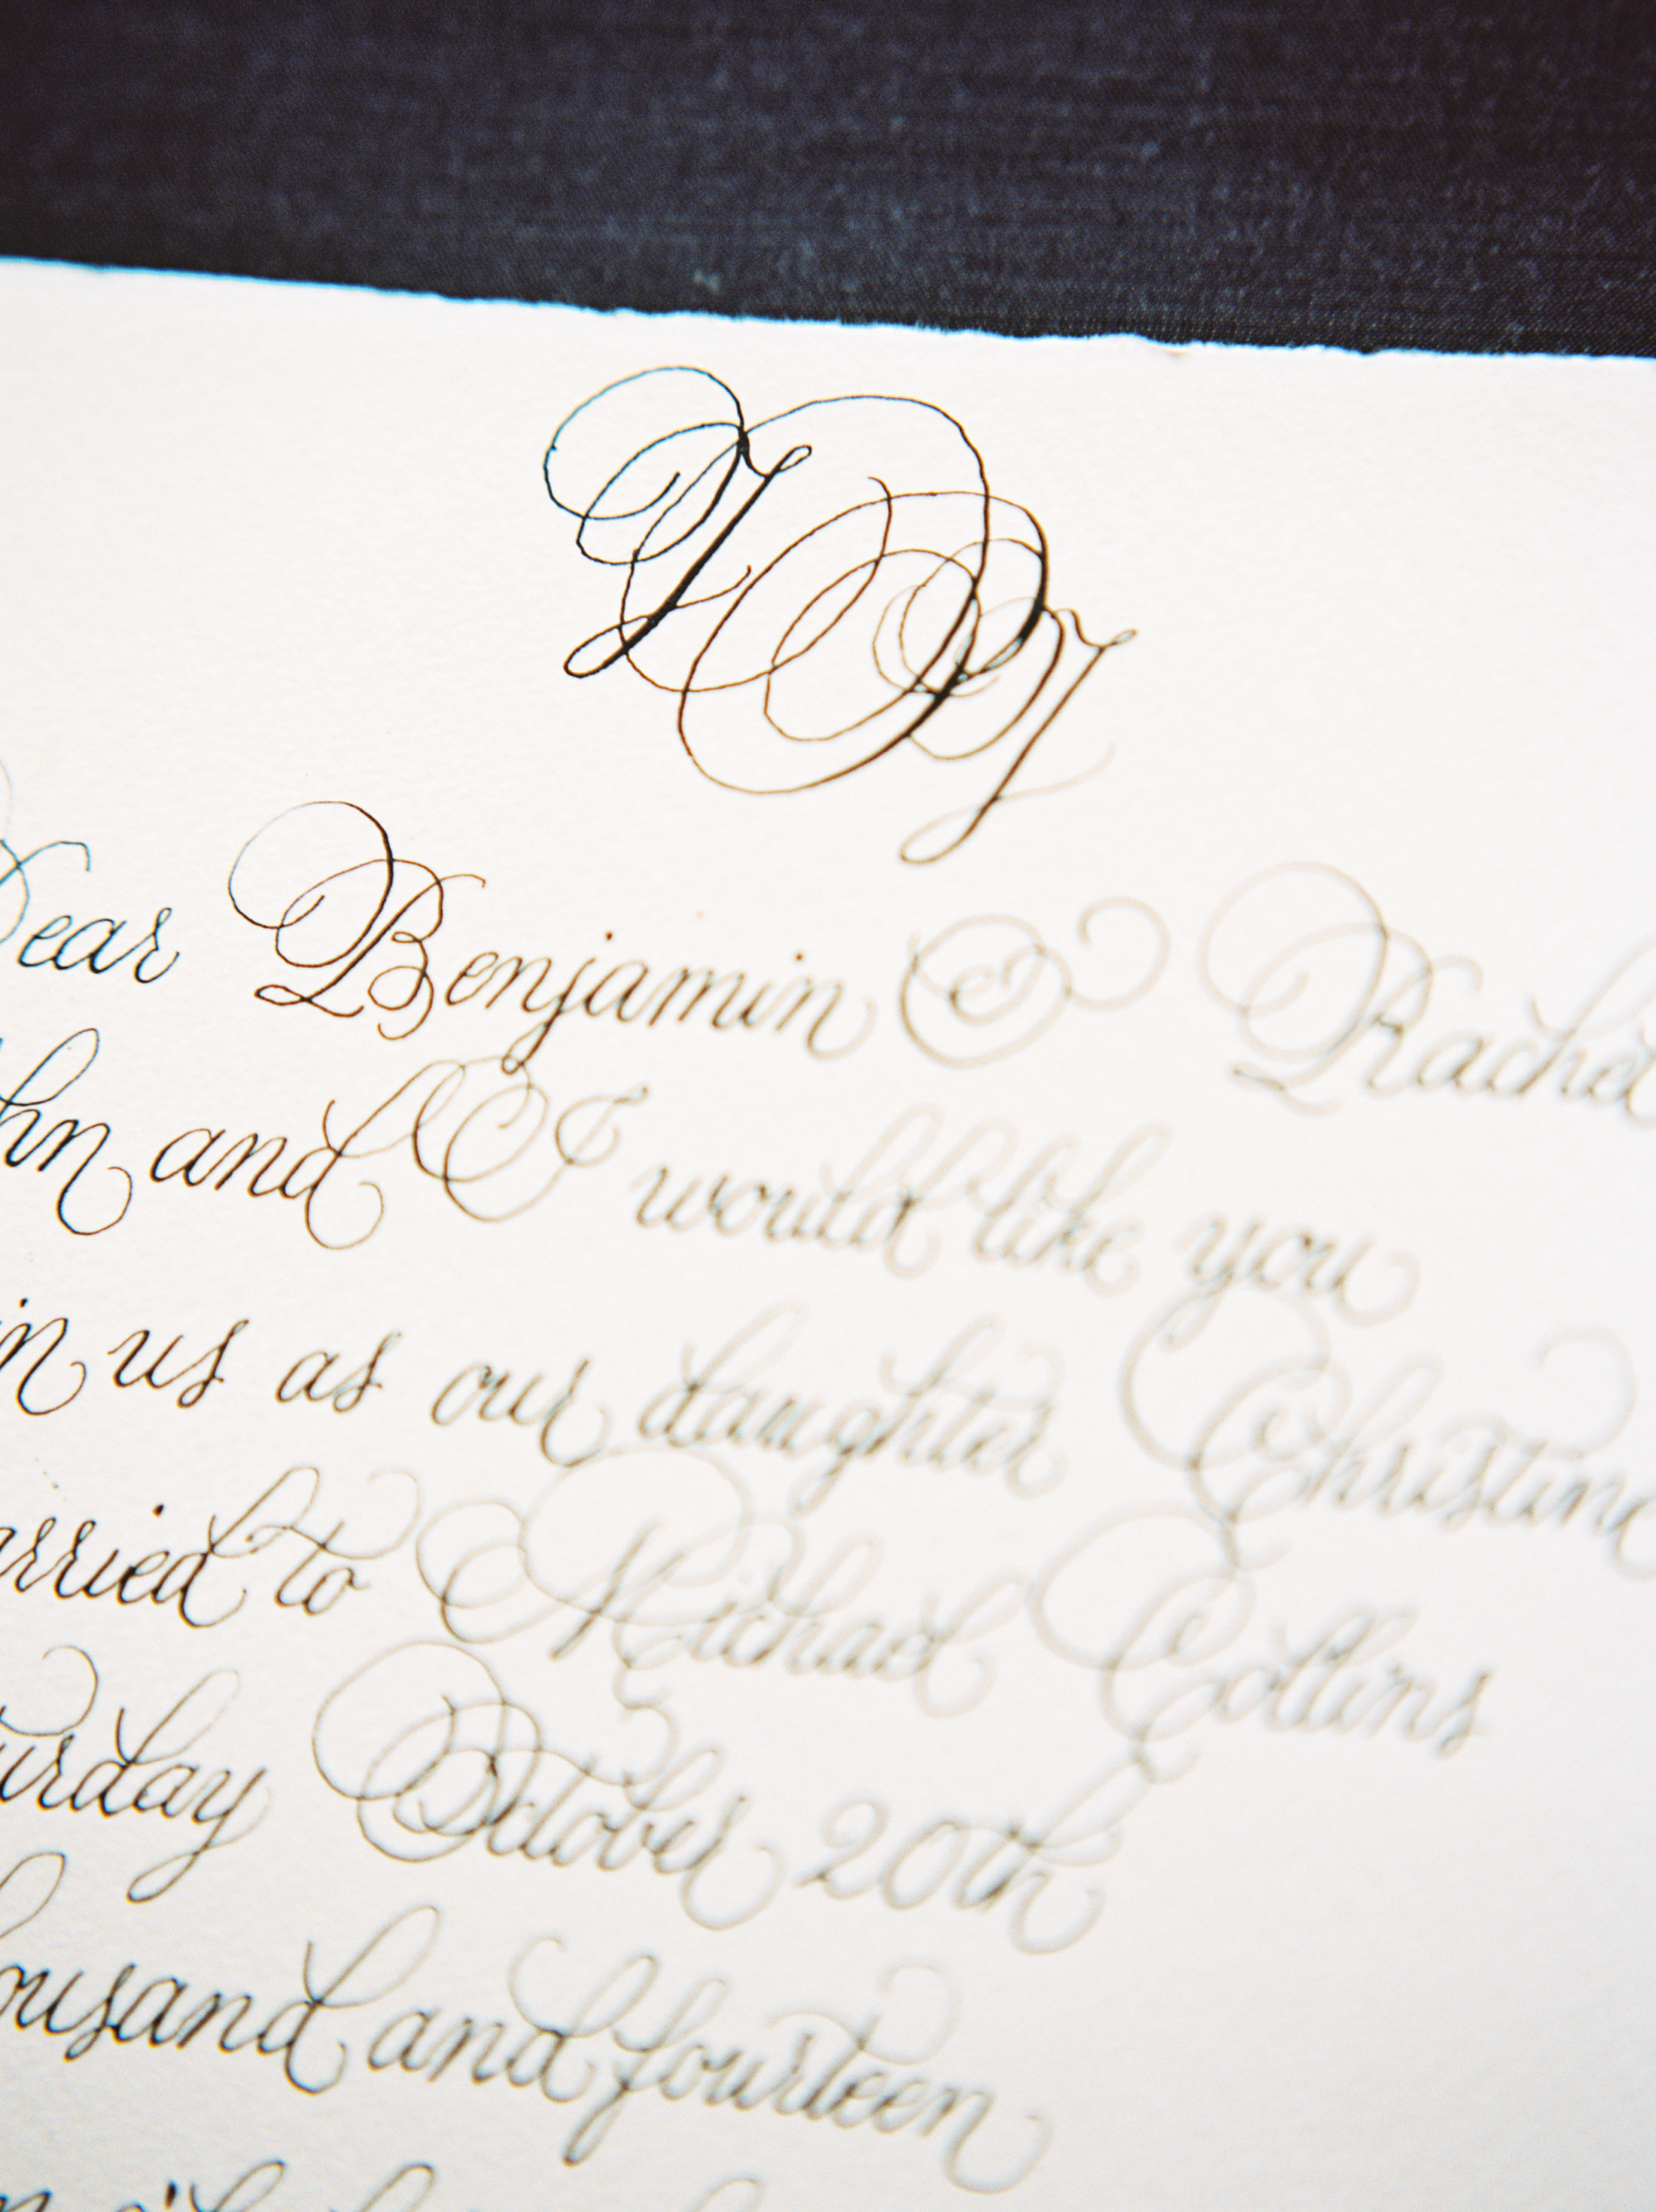 Dear Benjamin & Rachel
hn and I would like you
in us as our daughter Christine
arried to Michael Collins
urday October 20th
ousand and fourteen